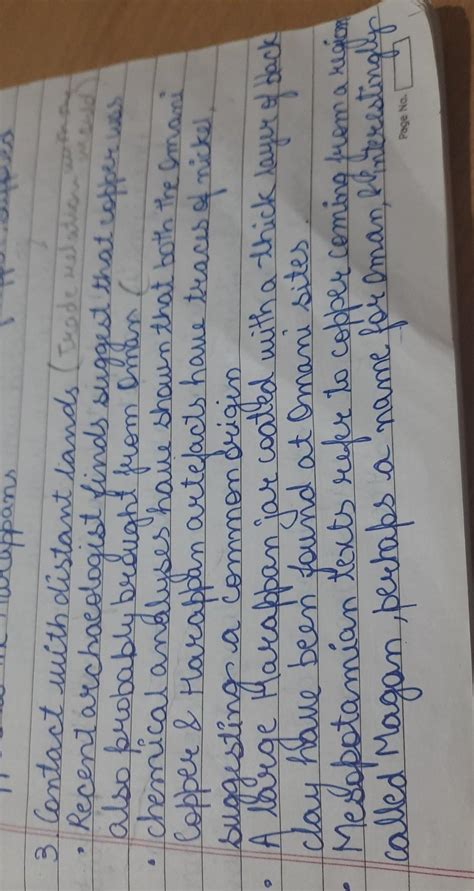 Harappans
3. Contact with distant lands (Trade relation with
world)
• Recent archaeologist finds suggest that copper was
also probably brought from Oman (
• chemical analyses have shown that both the Omani
Copper & Harappan artefacts have traces of nickel,
suggesting a common origin
• A large Harappan jar coated with a thick layer of back
clay have been found at Omani sites.
• Mesopotamian texts refer to copper coming from a region
called Magan, perhaps a name for Oman, & Interestingly
Page No.